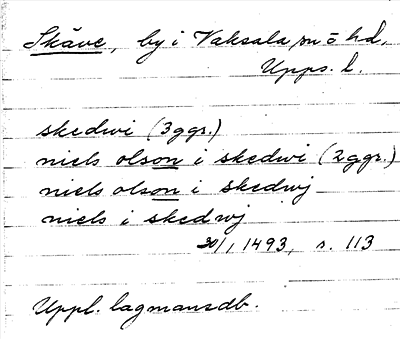 Skäve, by i Vaksala sn o hd,
Upps. l.
skedwi (3ggr.)
niels olson i skedwi (2ggr.)
niels olson i skedwj
niels i skedwj
20/1 1493, s. 113
Uppl. lagmansdb.